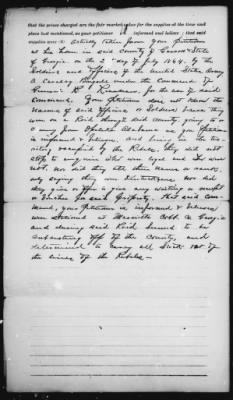 that the prices charged are the fair market value for the supplies at the time and
place last mentioned, as your petitioner is informed and believes; that said
supplies were actually taken from your petitioner
at his home in said County of and State
of Georgia on the 2nd day of July 1864, by the
Soldiers and officers of the United States Army
a Cavalry Brigade under the Command of
General for the use of said
Command. Your Petitioner does not know the
names of said officers or Soldiers. Since they
were on a Raid through said County going to
from Opelika Alabama as your Petitioner
is informed & believes, and being in the
occupied by the Rebels, they did not
stop to enquire who was loyal and who was
not, nor did they tell their names or ranks,
only saying they were Nor did
they give or offer to give any writing or receipt
or voucher for said property. That said com-
mand, your Petitioner is informed & believes
was stationed at Marietta Cobb Co Georgia
and during said Raid seemed to be
subsisting off of the County, and
determined to carry all out of
the lines of the Rebels.